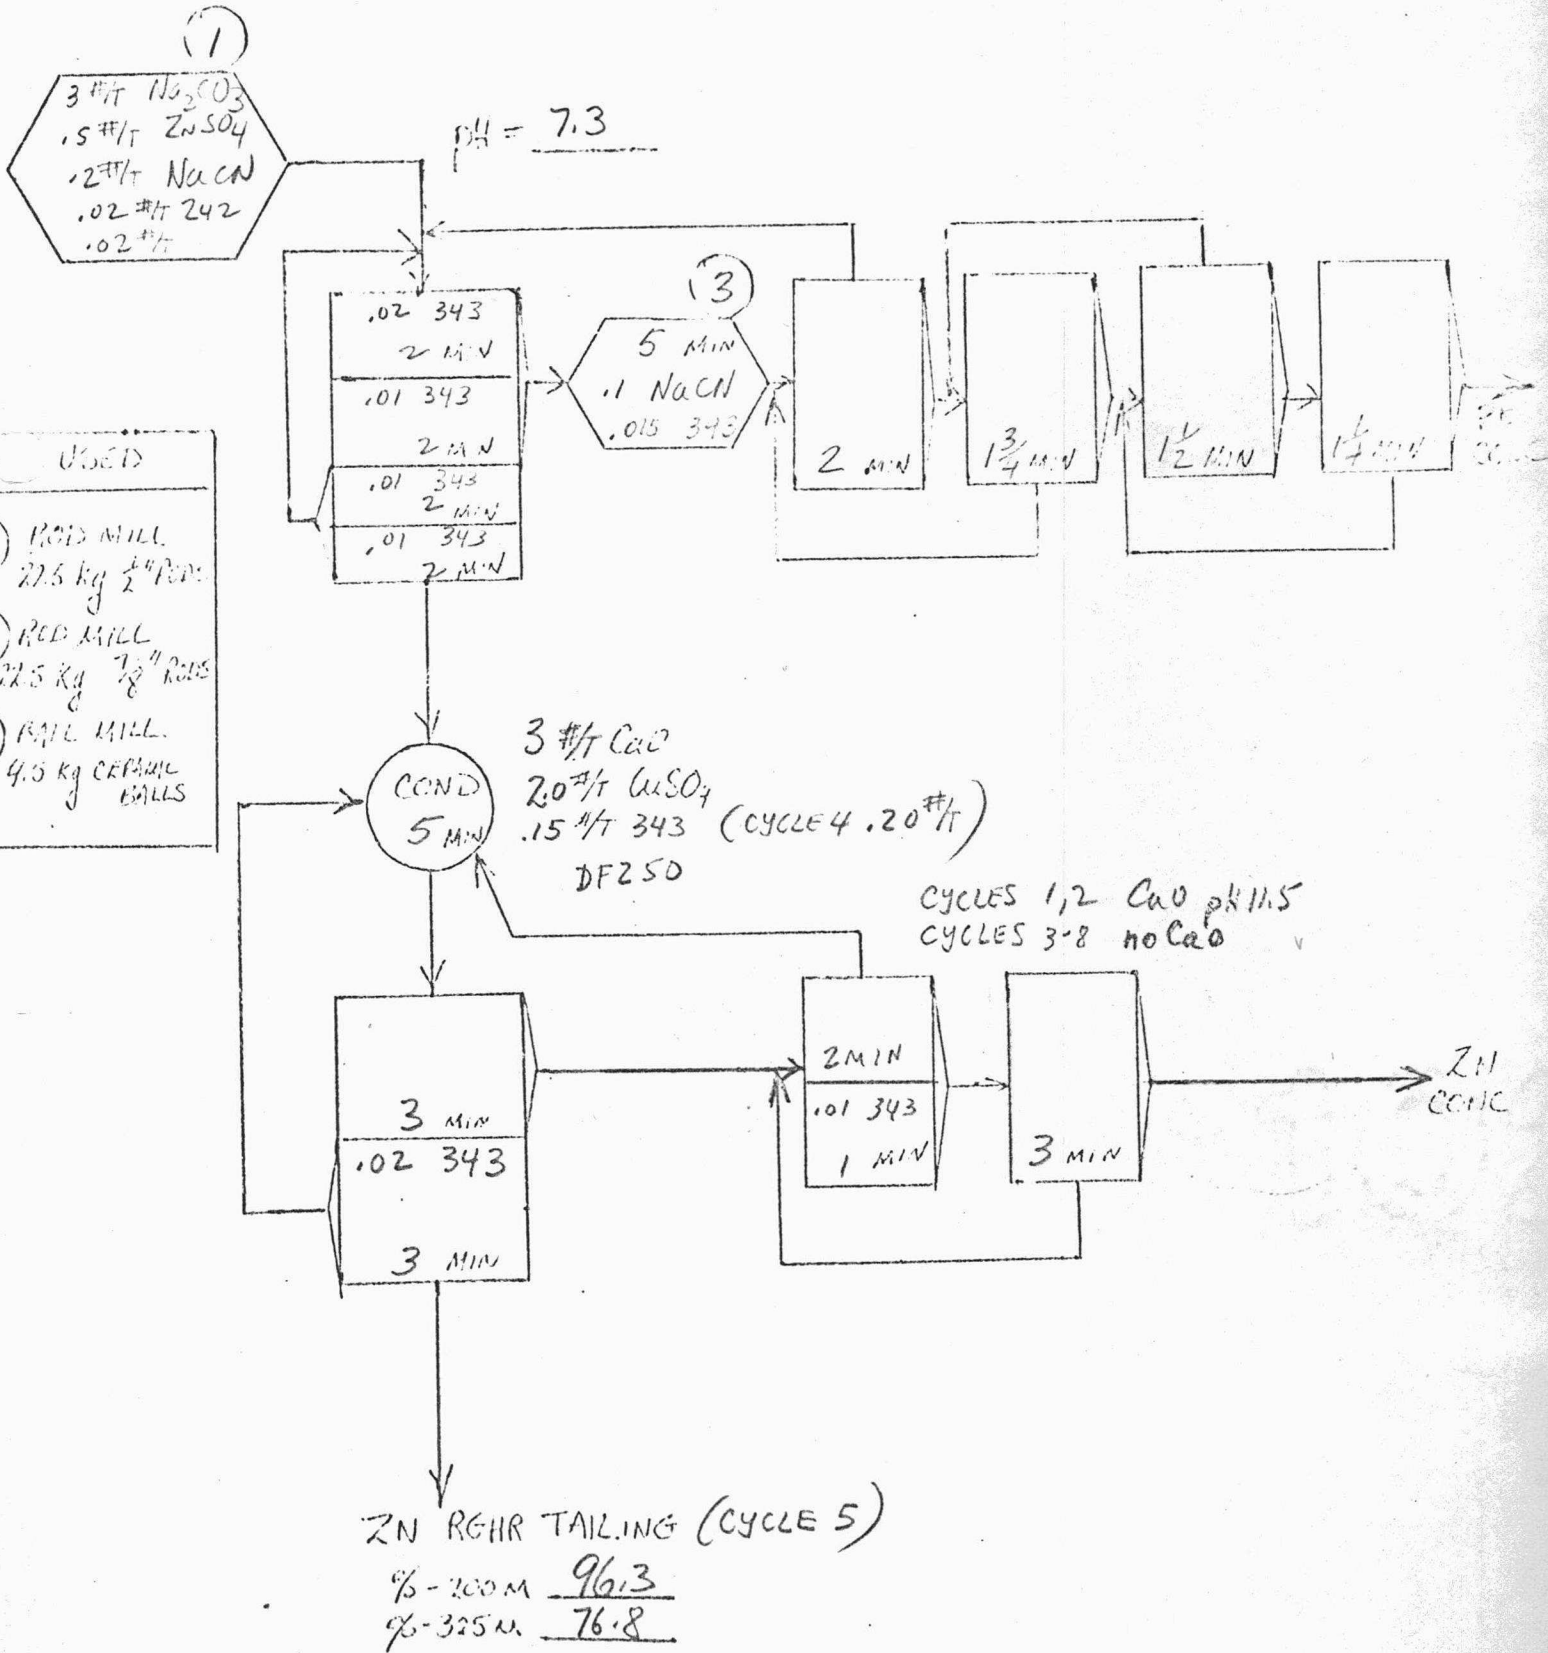 1
3 #/T Na2CO3
.5 #/T ZnSO4
.2 #/T NaCN
.02 #/T 242
.02 #/T
pH = 7.3
.02 343
2 MIN
.01 343
2 MIN
.01 343
2 MIN
.01 343
2 MIN
3
5 MIN
.1 NaCN
.015 343
2 MIN
1 3/4 MIN
1 1/2 MIN
1 1/4 MIN
CONC
USED
ROD MILL
22.5 kg 1/2" RODS
ROD MILL
22.5 kg 7/8" RODS
BALL MILL
4.5 kg CERAMIC
BALLS
COND
5 MIN
3 #/T CaO
2.0 #/T CuSO4
.15 #/T 343 (CYCLE 4 .20 #/T)
DF250
CYCLES 1,2 CaO pH 11.5
CYCLES 3-8 no CaO
3 MIN
.02 343
3 MIN
2 MIN
.01 343
1 MIN
3 MIN
ZN
CONC
ZN RGHR TAILING (CYCLE 5)
%-200M 96.3
%-325M 76.8